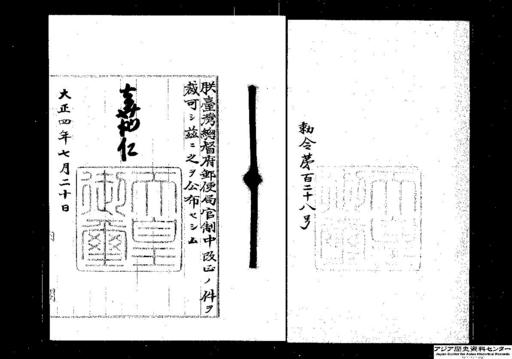 勅令第百二十八号
朕臺灣總督府郵便局官制中改正ノ件ヲ
裁可シ茲ニ之ヲ公布セシム
嘉仁
天皇
御璽
大正四年七月二十日
アジア歴史資料センター
Japan Center for Asian Historical Records